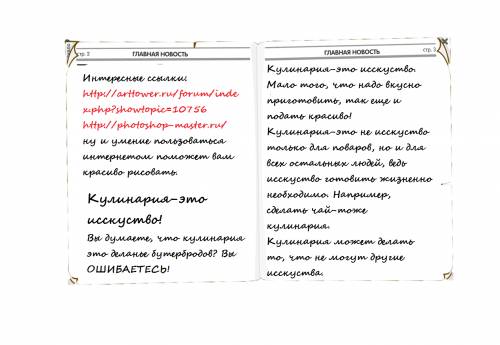 стр. 2
ГЛАВНАЯ НОВОСТЬ
Интересные ссылки:
http://arttower.ru/forum/inde
x.php?showtopic=10756
http://photoshop-master.ru/
ну и умение пользоваться
интернетом поможет вам
красиво рисовать.
Кулинария-это
исскуство!
Вы думаете, что кулинария
это деланье бутербродов? Вы
ОШИБАЕТЕСЬ!
ГЛАВНАЯ НОВОСТЬ
стр. 3
Кулинария-это исскуство.
Мало того, что надо вкусно
приготовить, так еще и
подать красиво!
Кулинария-это не исскуство
только для поваров, но и для
всех остальных людей, ведь
исскуство готовить жизненно
необходимо. Например,
сделать чай-тоже
кулинария.
Кулинария может делать
то, что не могут другие
исскуства.